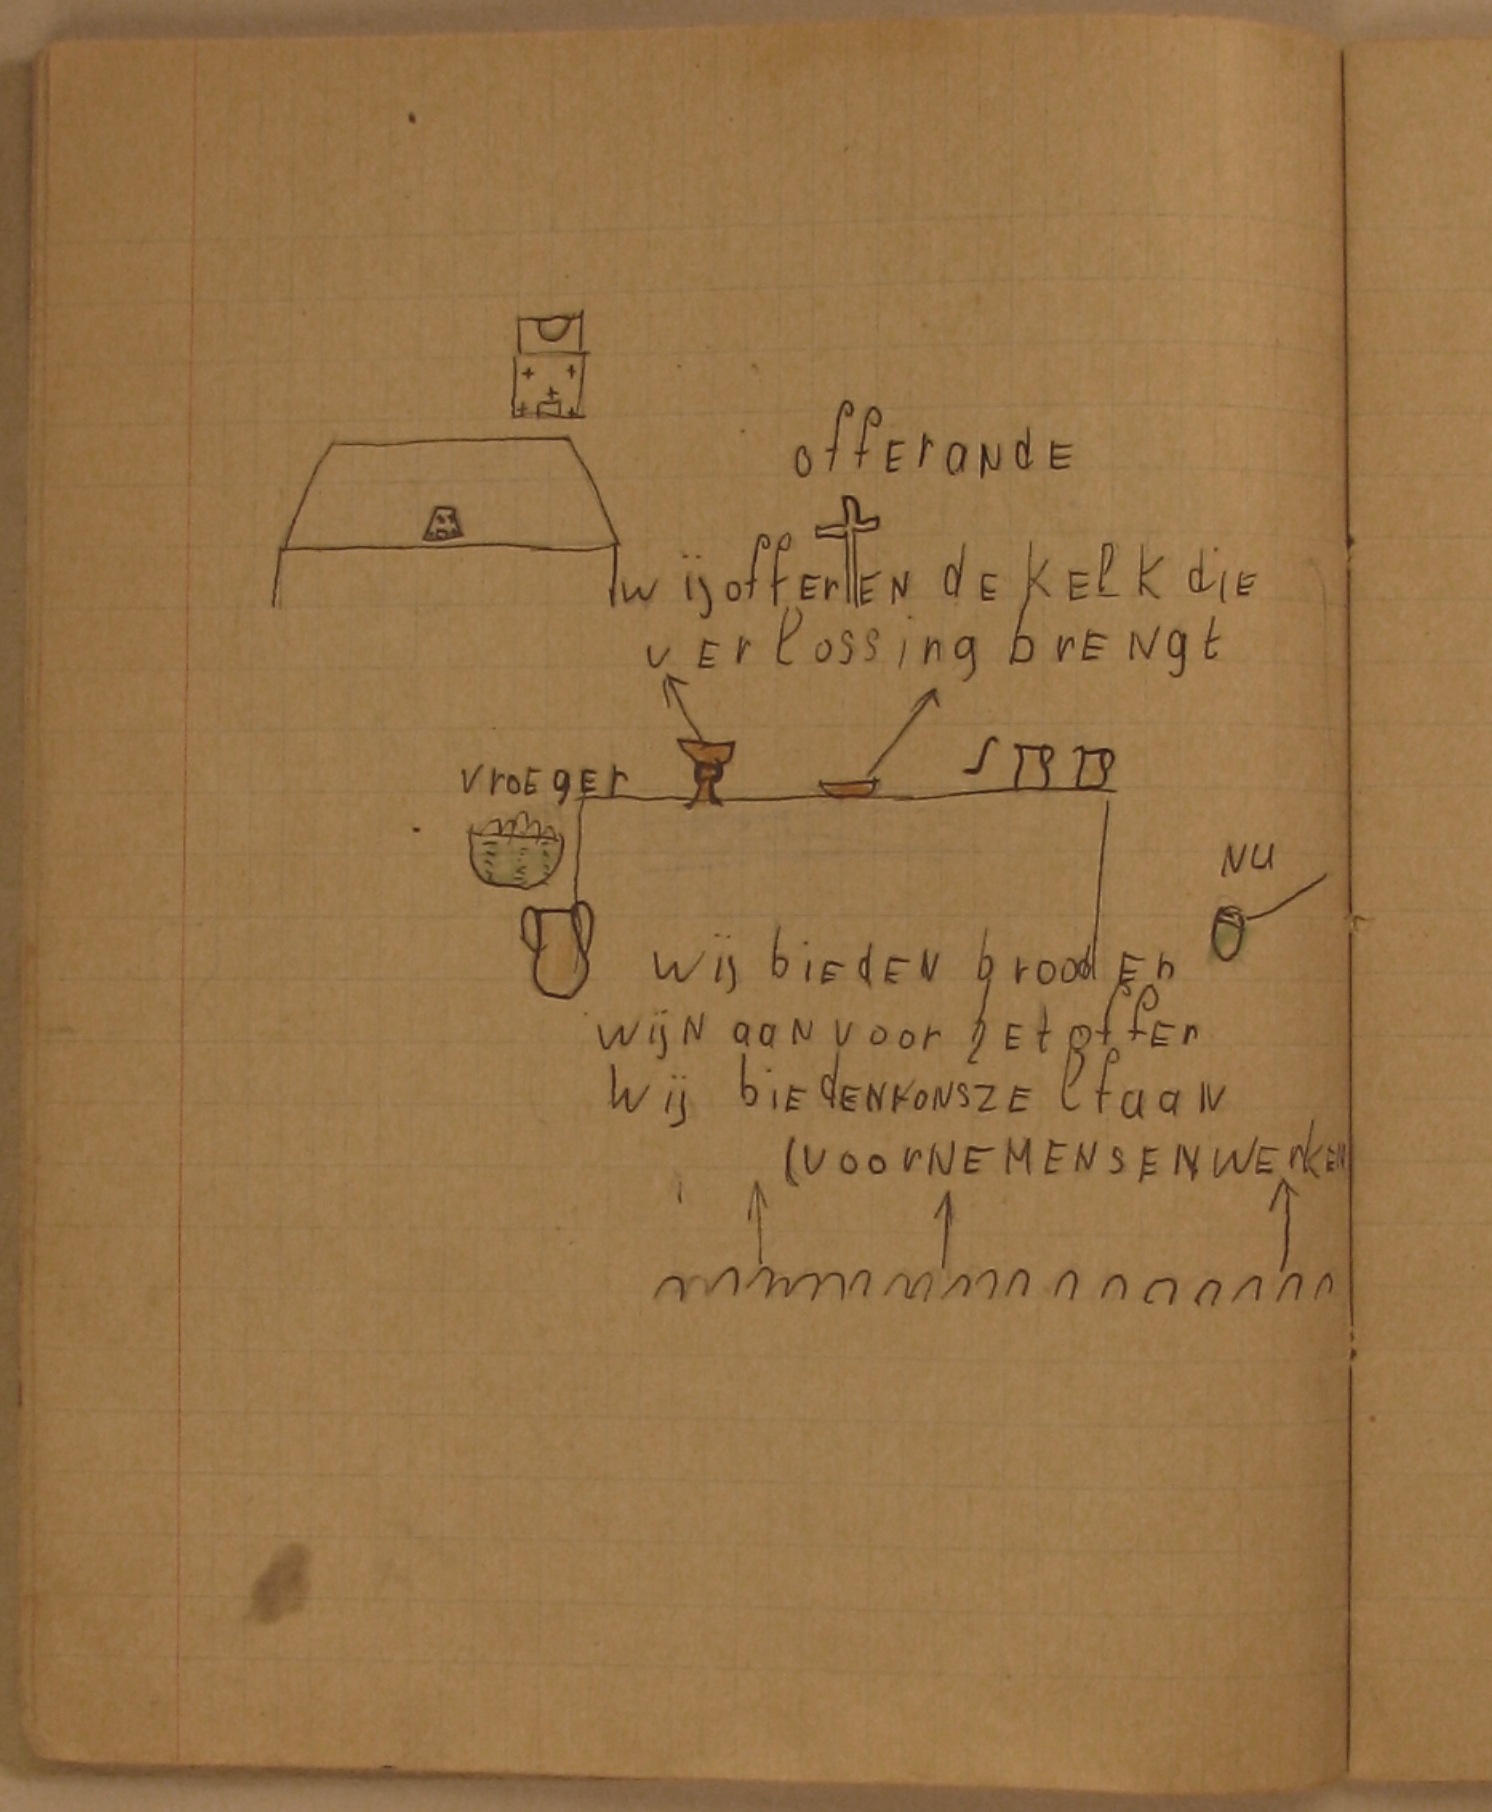 offerande
wij offeren de kelk die
verlossing brengt
vroeger
nu
wij bieden brood en
wijn aan voor het offer
wij biedenkonszelfaan
(voornemensenwerken